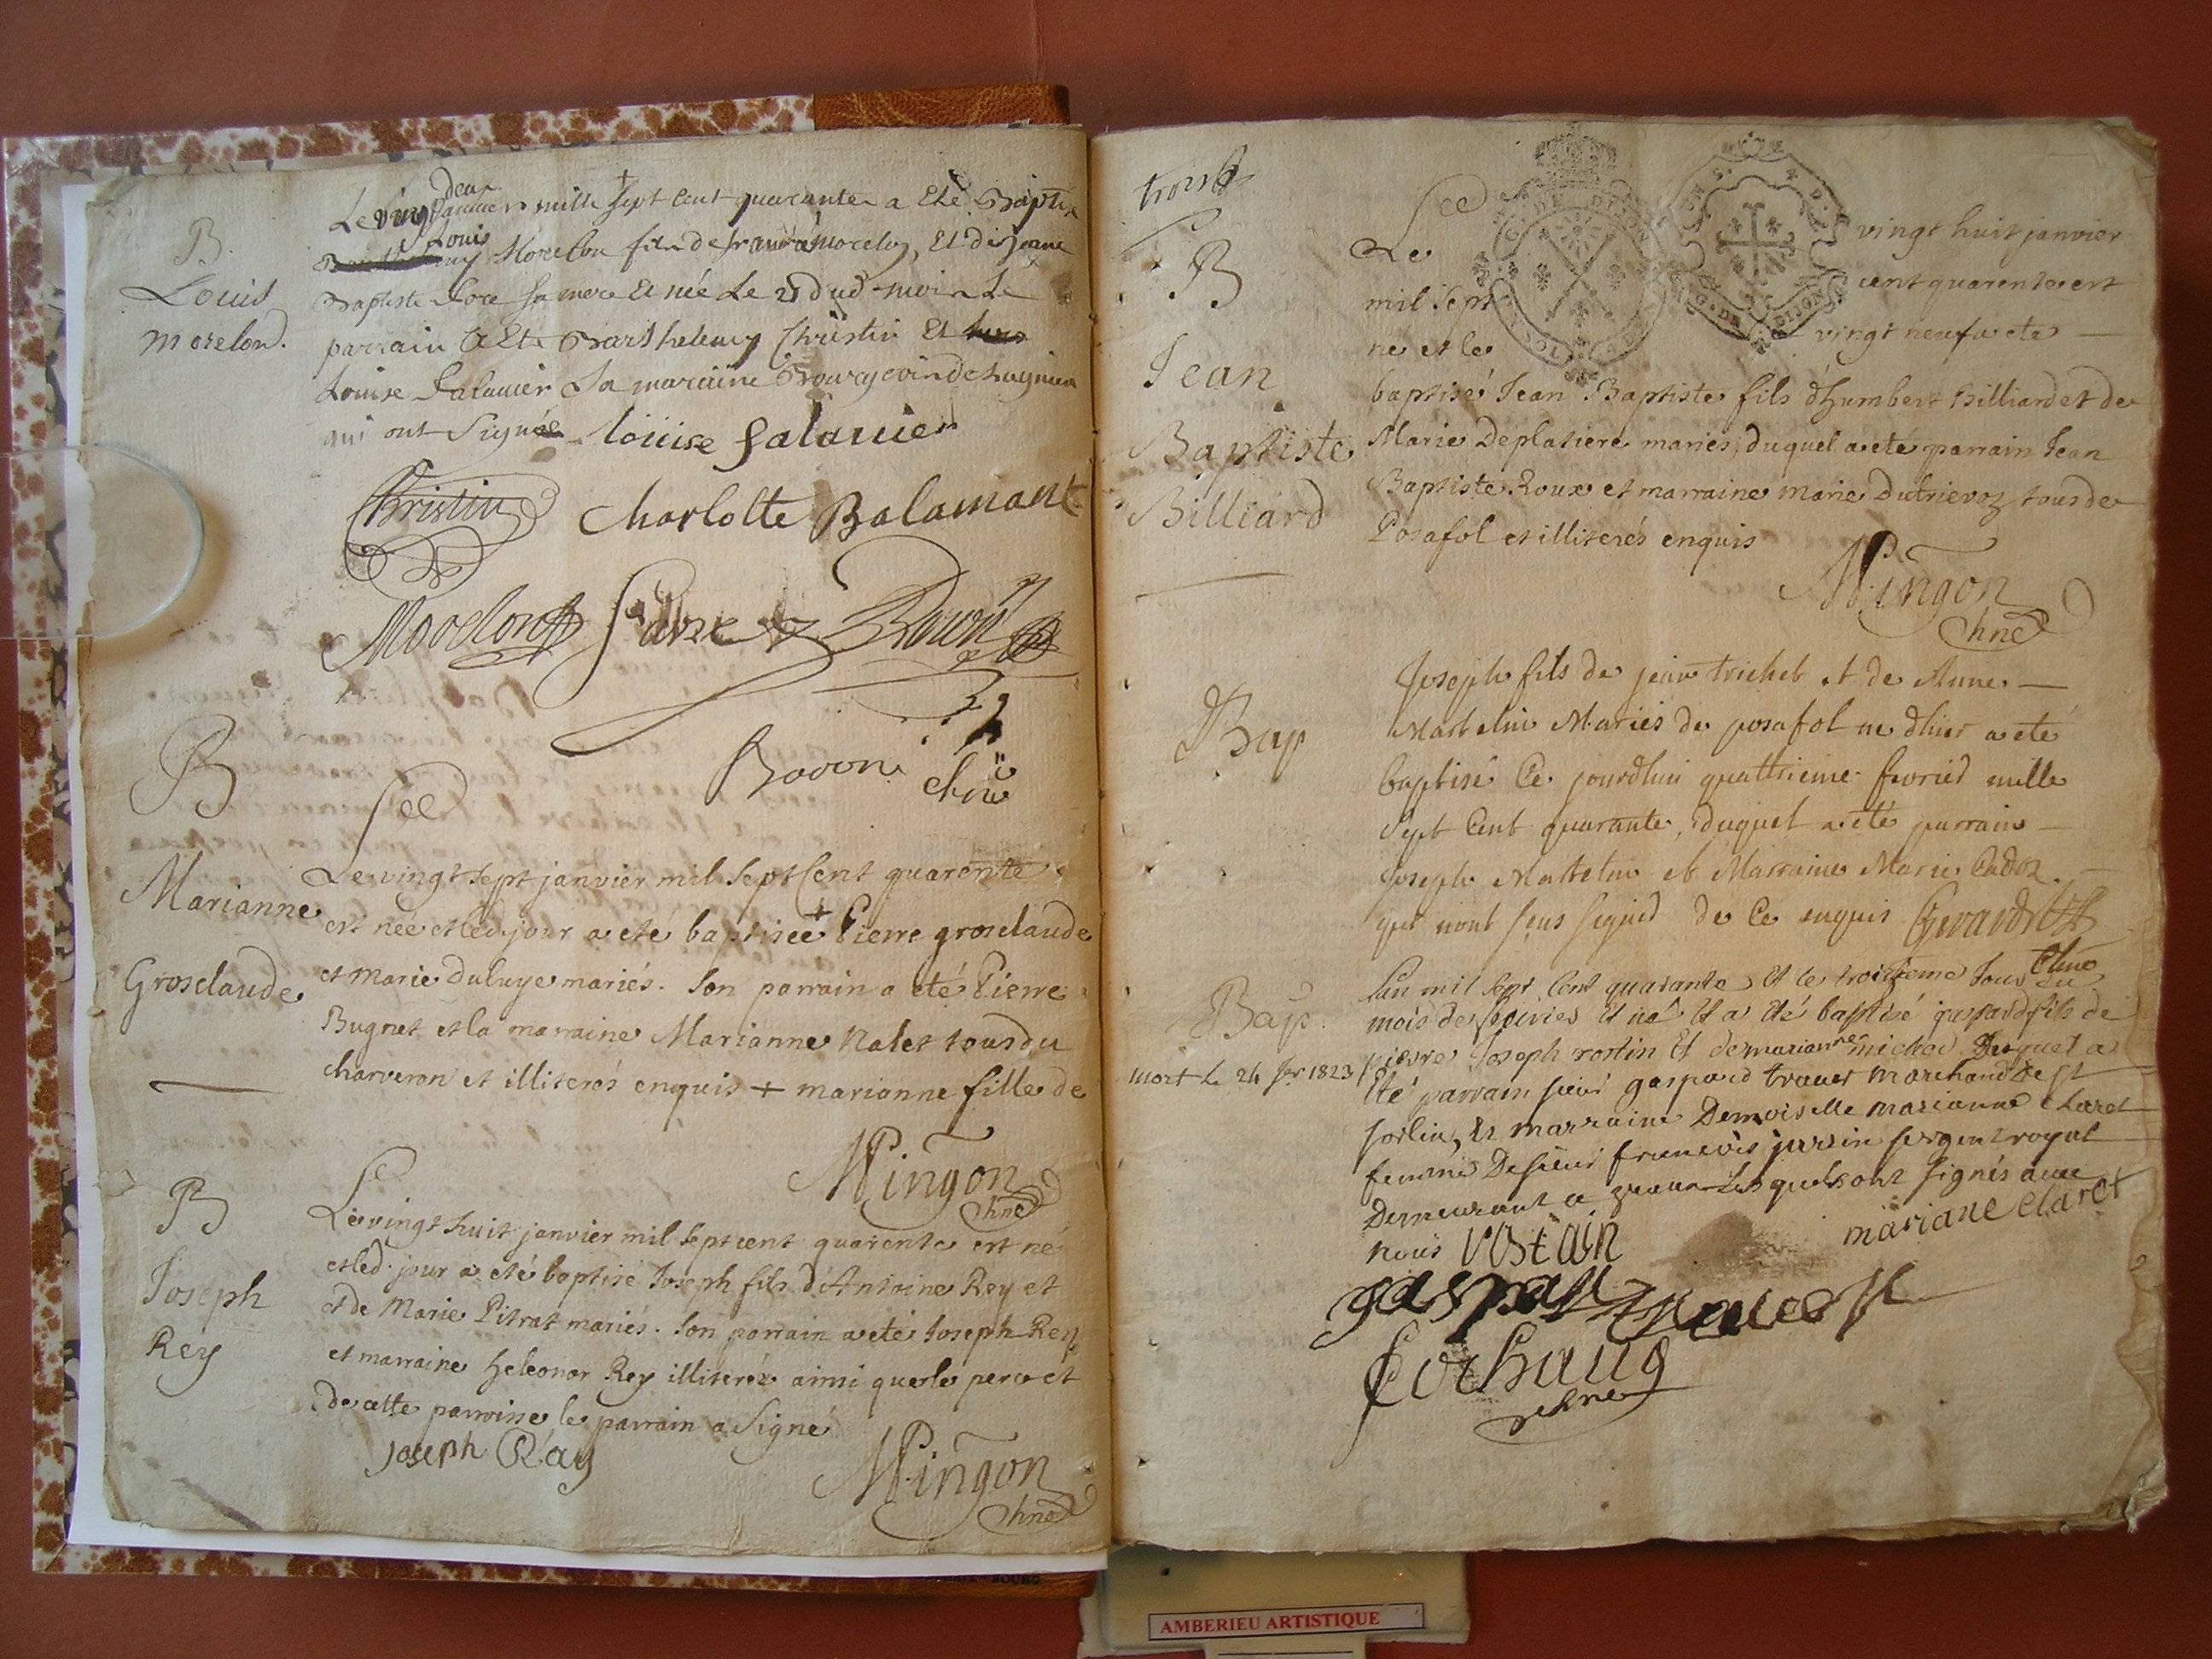 B.
Louis
morelon.
deux
Le vingt janvier mille sept cent quarante a Eté Baptisé
Louis
Morelon fils de francois morelon, Et de jeanne
Baptiste sa mere Et née Le 21 dud. mois Le
parrain a Eté Barthelemy Christin Et
Louise Salanier La maraine de Lagnieu
qui ont Signée louise Salanier
Christin Charlotte Balamant
Morelon Favre
Bovon
chne
B
Marianne
Grosclaude
Le vingt sept janvier mil sept Cent quarente
est née et led. jour a eté baptiseé + Pierre grosclaude
et Marie duluye mariés. Son parrain a eté Pierre
Bugnet et la marraine Marianne Nalet tous du
charveron et illiterés enquis + marianne fille de
Mingon
chne
B
Joseph
Rey
Le vingt huit janvier mil sept cent quarente est né
et led. jour a eté baptisé Joseph fils d'Antoine Rey et
et de Marie Pitrat mariés. Son parrain a eté Joseph Rey
et marraine heleonor Rey illiterée ainsi que le pere et
de cette parroisse le parrain a Signé
Joseph Ray
Mingon
chne
trois
B
Jean
Baptiste
Billiard
Le vingt huit janvier
mil sept cent quarente est
né et le vingt neuf a eté
baptisé Jean Baptiste fils d'humbert Billiard et de
Marie Deplatiere mariés, duquel a eté parrain Jean
Baptiste Roux et marraine marie Dutrievoz tous de
Posafol et illiterés enquis
Mingon
chne
Bap
Joseph fils de jean trichet et de Anne
Mattelin Mariés de posafol ne dhier a eté
baptisé Ce jourdhui quattrieme fevried mille
Sept Cent quarante, duquel a eté parrain
Joseph Mattelin et Marraine Marie Cadoz
qui nont sçus signed de Ce enquis Gerard
chne
Bap.
mort le 24 1823
Lan mil sept Cent quarante Et le troizieme Jour du
mois de fevrier Et né Et a été baptisé gaspard fils de
pierre Joseph rostin Et de marianne michod Duquel a
été parrain sieur gaspard travet marchand de St
sorlin, Et marraine Demoiselle marianne Claret
femme De sieur francois jursin sergent royal
Demeurant a Lesquels ont signés avec
nous rostain mariane claret
gaspard travest
Cochaud
chne
AMBERIEU ARTISTIQUE